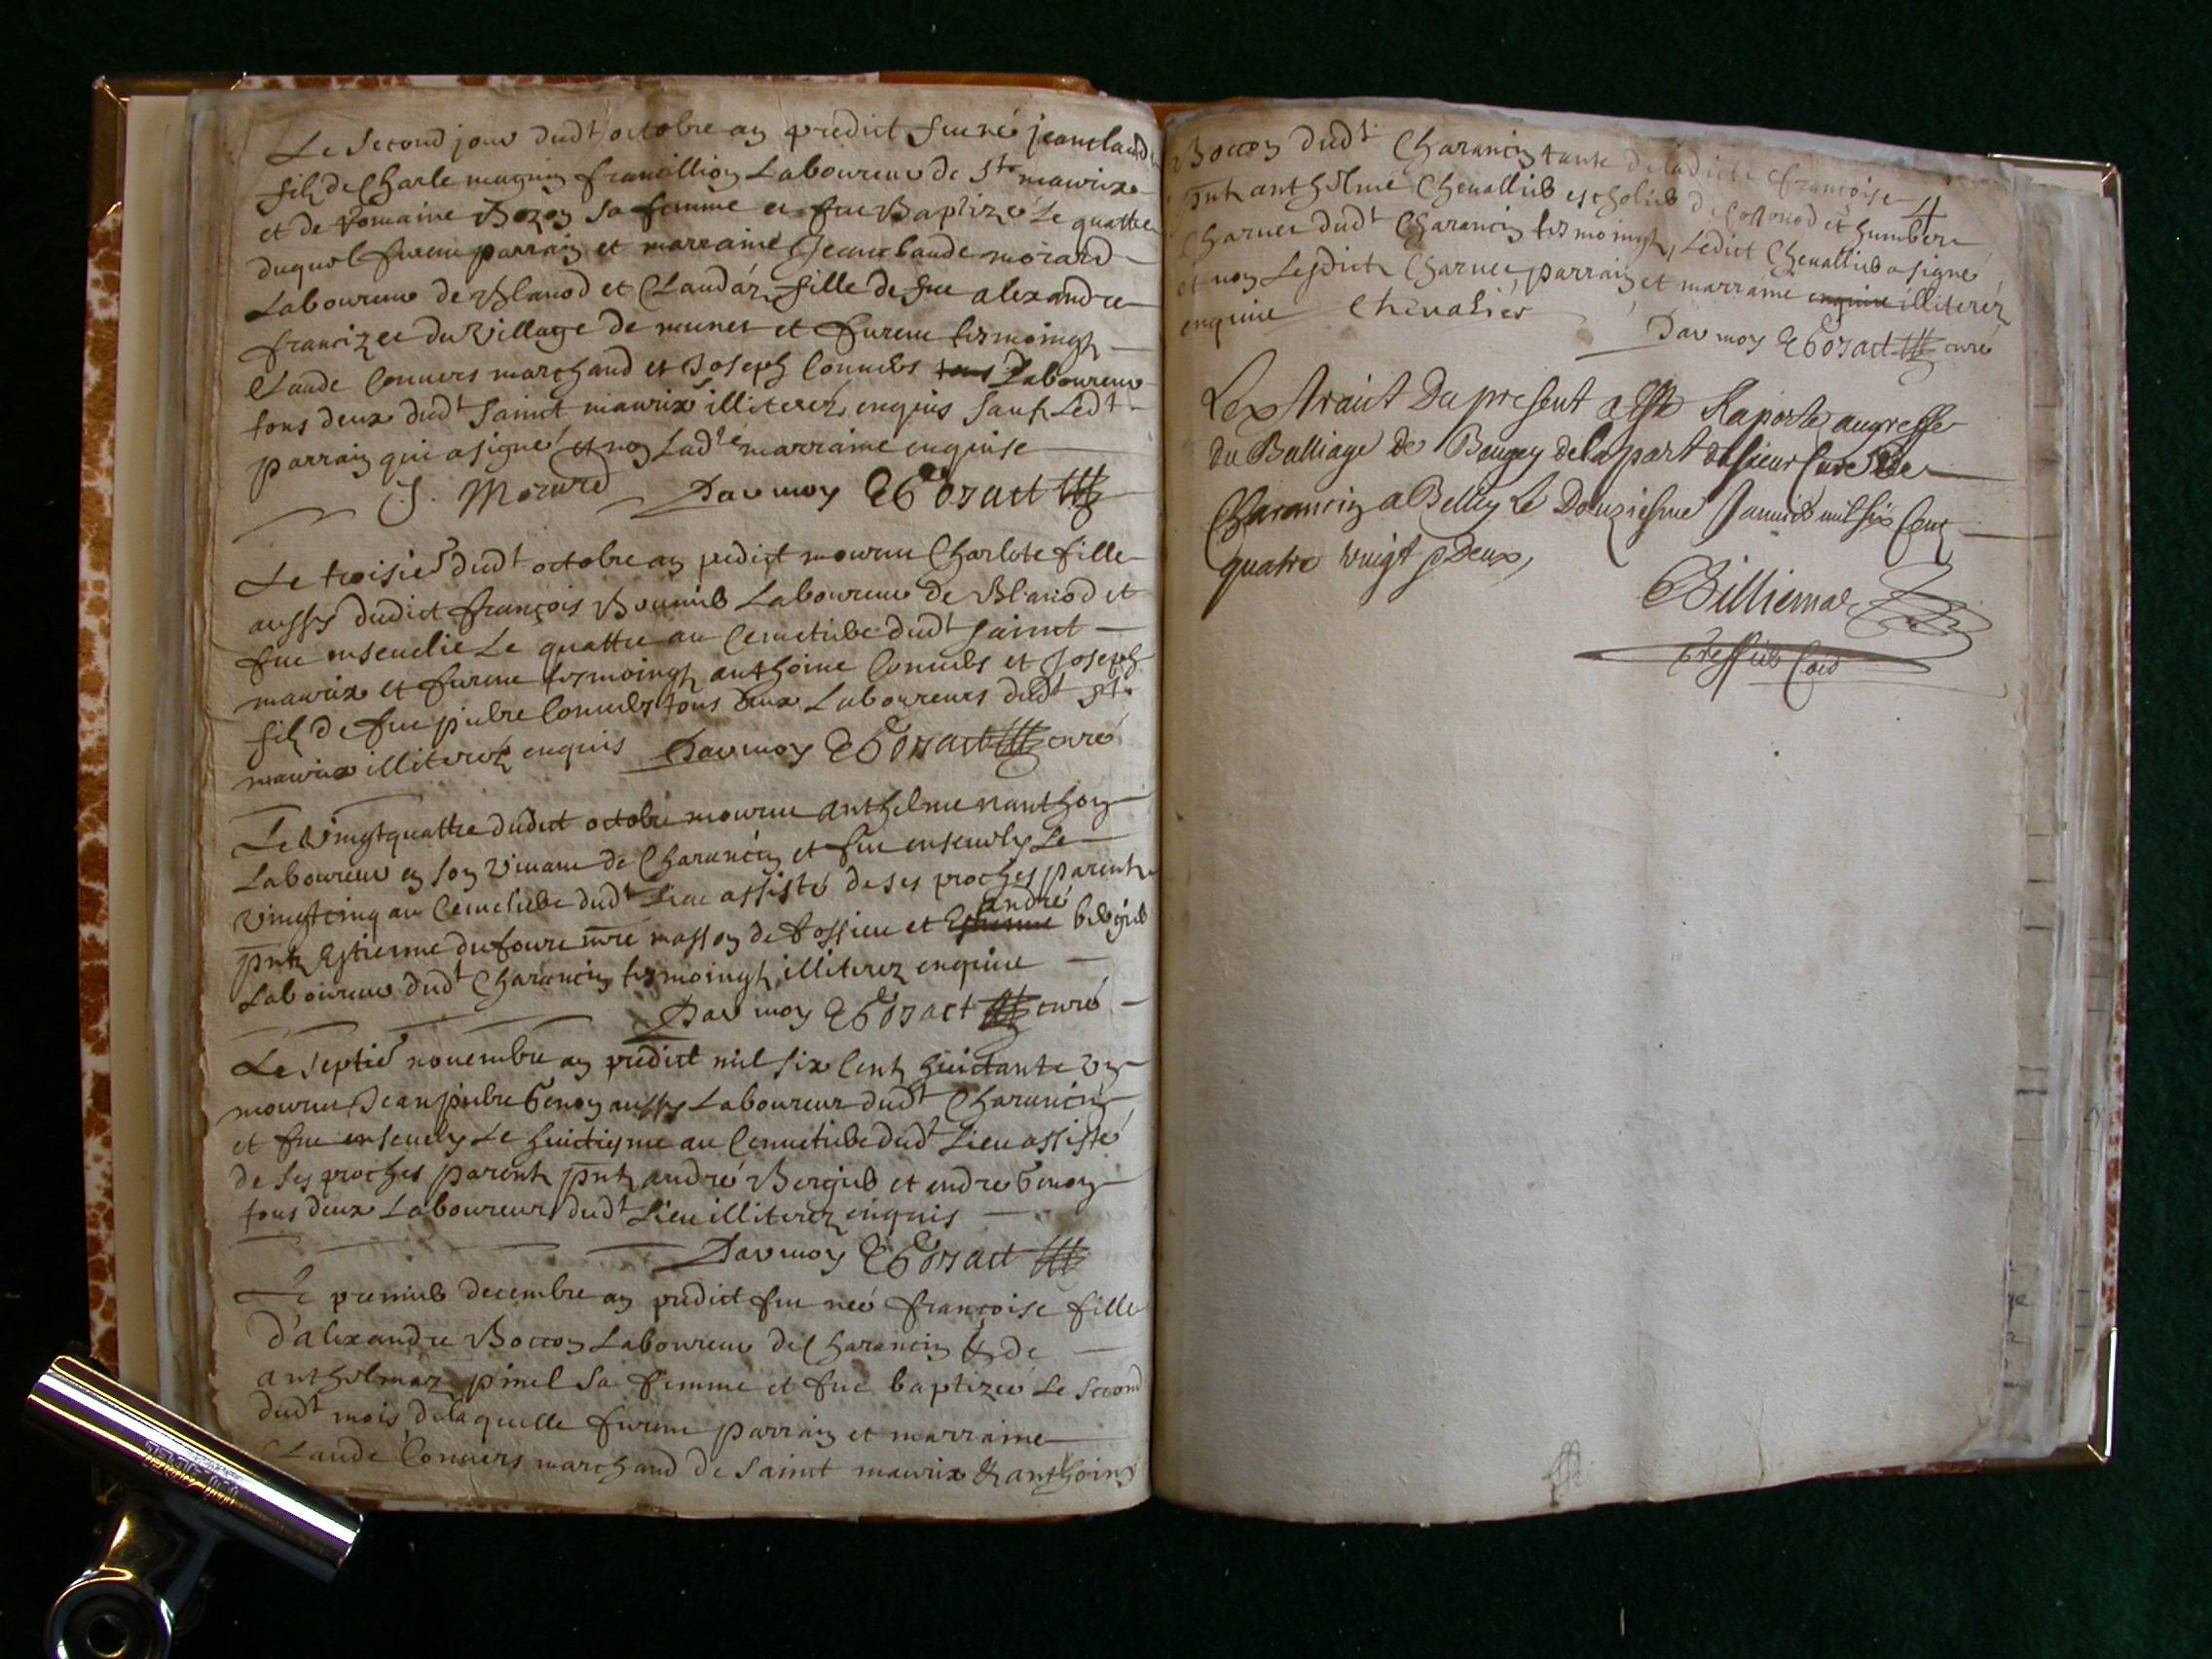 Le second jour dudt octobre an predict fut né jeanclaude
filz de Charle mugnin francillion Laboureur de St maurix
et de Romaine Bozon sa femme et fut Baptizé Le quattre
duquel furent parrain et marraine Jeanclaude morard
Laboureur de Blanod et Claudaz fille de feu alexandre
francizet du Village de munet et furent tesmoingz
Claude Conuers marchand et Joseph Conuers Laboureur
tous deux dudt sainct maurix illiterez enquis sauf Ledt
parrain qui a signé et non Ladte marraine enquise
J. Morard Par moy curé
Le troisie dudt octobre an predict mourut Charlote fille
aussy dudict françois Laboureur de Blanod et
fut enseuelie Le quattre au Cemetiere dudt sainct
maurix et furent tesmoingz anthoine Conuers et Joseph
filz de feu pierre Conuers tous deux Laboureurs dudt St
maurix illiterez enquis Par moy curé
Le Vingtquattre dudict octobre mourut anthelme nanthon
Laboureur en son viuant de Charancin et fut enseuely Le
vingtcinq au Cemetiere dudt Lieu assisté de ses proches parentz
pntz Estienne dufour mre masson de fossieu et Estienne andré bergier
Laboureur dudt Charancin tesmoingz illiterez enquis
Par moy curé
Le septie nouembre an predict mil six Centz huictante vn
mourut Jean pierre Genon aussy Laboureur dudt Charancin
et fut enseuely Le huictiesme au Cemetiere dudt Lieu assisté
de ses proches parentz pntz andré Bergier et andre Genon
tous deux Laboureurs dudt Lieu illiterez enquis
Par moy
Le premier decembre an predict fut née françoise fille
d'alexandre Boccon Laboureur de Charancin & de
anthelmaz pinel sa femme et fut baptizée Le second
dudt mois delaquelle furent parrain et marraine
Claude Conuers marchand de sainct maurix & anthoina
Boccon dudt Charancin tante deladicte françoise
4
pntz anthelme Cheuallier escholier de Cossonod et humbert
Charuet dudt Charancin tesmoingz, Ledict Cheuallier a signé
et non Lesdictz Charuet, parrain et marraine enquis illiterez
enquis Chevalier
Par moy curé
Lextrait Du present a esté Raporté au greffe
du Balliage de Beugey de la part du sieur Curé de
Charancin a Belley Le Douziesme Januier mil six Centz
quatre vingt & Deux,
Billiemaz
Greffier